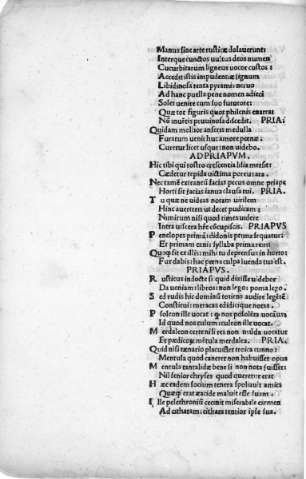 Manus sine arte rusticæ dolauerunt
Interque cunctos uultus deos numen
Cucurbitarum ligneus uocor custos :
Accedit istis impudentiæ signum
Libidinosa tenta pyramis neruo
Ad hanc puella pene nomen adieci
Solet uenire cum suo fututore:
Quæ tot figuris quot philenis enarrat
No inuētis pruriosa discedit. PRIA:
Quidam mollior anseris medulla
Furatum uenit huc amore pœnæ :
Curetur licet usque non uidebo.
AD PRIAPVM.
Hic tibi qui rostro crescentia lilia mersit
Cæditur tepida uictima porcus ara
Ne tamē exanimē facias pecus omne priape
Horti sit facias ianua clausa tui. PRIA.
T u quæ ne uideas notam uirilem
Hinc auerteris ut decet pudicam :
Nimirum nisi quod times uidere
Intra uiscera hēc cōcupiscis. PRIAPVS
P enelopes primā didonis prima sequatur:
Et primam canis syllaba prima remi
Quoq; fit ex illis: mihi tu deprensus in horto
Fur dabis: hac pœna culpa luenda tua est.
PRIAPVS.
R usticus indocte si quid dixisse uidebor
Da ueniam: libros: non lego: poma lego.
S ed rudis hic dominū totiens audire legētē
Constitui: mæracas edidicique notas.
P soleon ille uocat : q; nos psoloēta uocamus
Id quod nos culum culeon ille uocat.
M erdaleon certe nisi res non munda uocatur
Et pædiconis mētula merdalea. PRIA.
Quid nisi tænario placuisset troica cunno:
Mentula quod caneret non habuisset opus
M entula tantalidæ bene si non nota fuisset:
Nil senior chryses quod quereretur erat
H æc eadem socium tenera spoliauit amica
Quæq; erat æacidæ maluit esse suam
I lle pelethroniū cecinit miserabile carmen
Ad citharam: cithara tensior ipse sua.